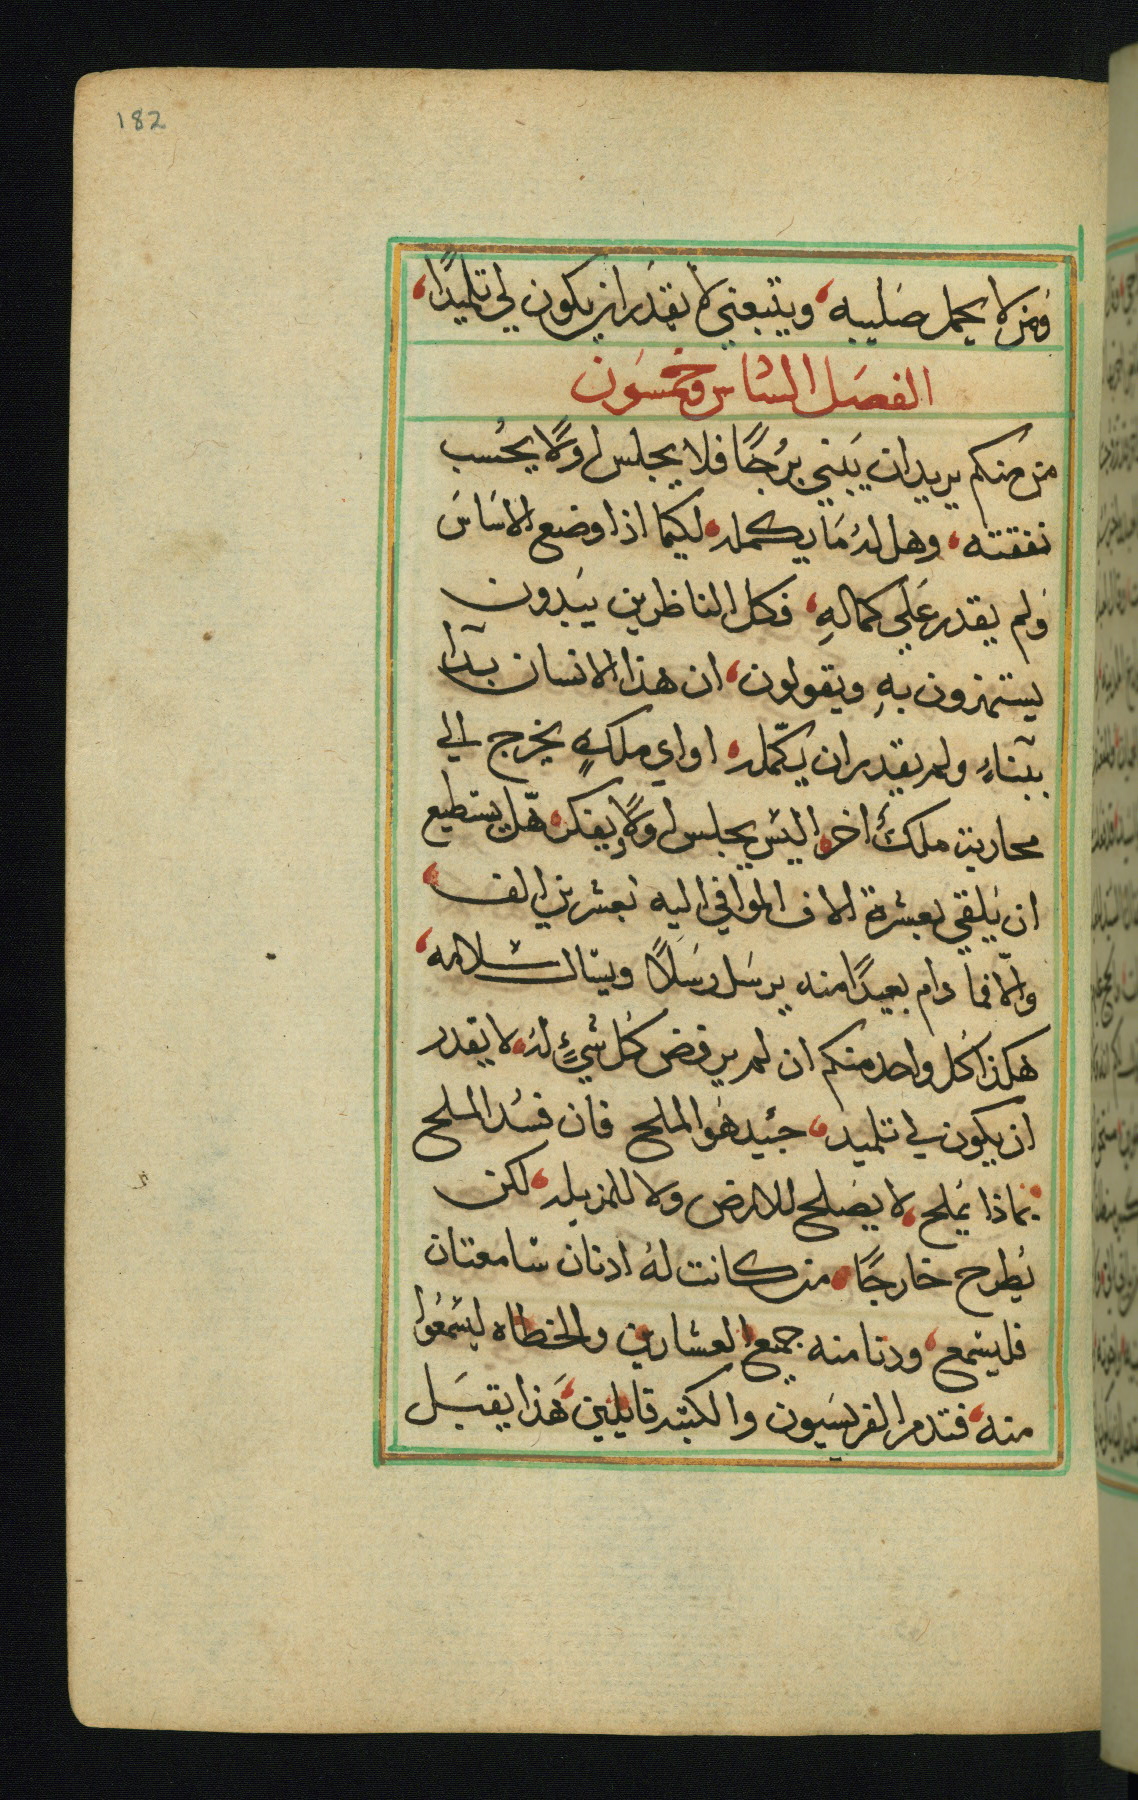 182
ومن لا يحمل صَليبه، ويتبعني لا يقدَر ان يكون لي تلميدًا،
الفصَل السَادس وخمسَون
من منكم يريد ان يَبني بُرجًا فلا يجلس اولًا يحُسب
نفقته، وهل لهُ مَا يكمله، ليكما اذا وضع الاسَاسَ
وَلم يقدر عَلي كمالهِ، فكل الناظرين يبَدون
يستهزون بهِ ويقولون، ان هذا الانسان بدآ
ببنآءٍ ولم يقدر ان يكّمله، او اي ملكٍ يخرج الي
محاربة ملكٌ اخر، اليسَ يجلس اولًا ويفكر، هّل يستطيع
ان يَلقي بعشرة الاف الموافي اليه بعشرين الف،
والّا فما دام بعيدًا منه يرسَل رسَلًا ويسَال سَلامه،
هكذا كُل واحد منكم ان لم يرفض كُل شيءٍ لهُ، لا يقدر
ان يكون لي تلميد، جيّد هُو الملح فان فسُد الملح
بماذا يمَلح، لا يصَلح للارض ولا للمزبله، لكن
يُطرح خارجًا، من كانت لهُ ادنان سَامعتان
فليسَمع، ودنا منه جميع العشارين والخطاه ليسَمعُوا
منه، فتدمر الفريسَيون والكتبه قايلين، هَذا يقبَل